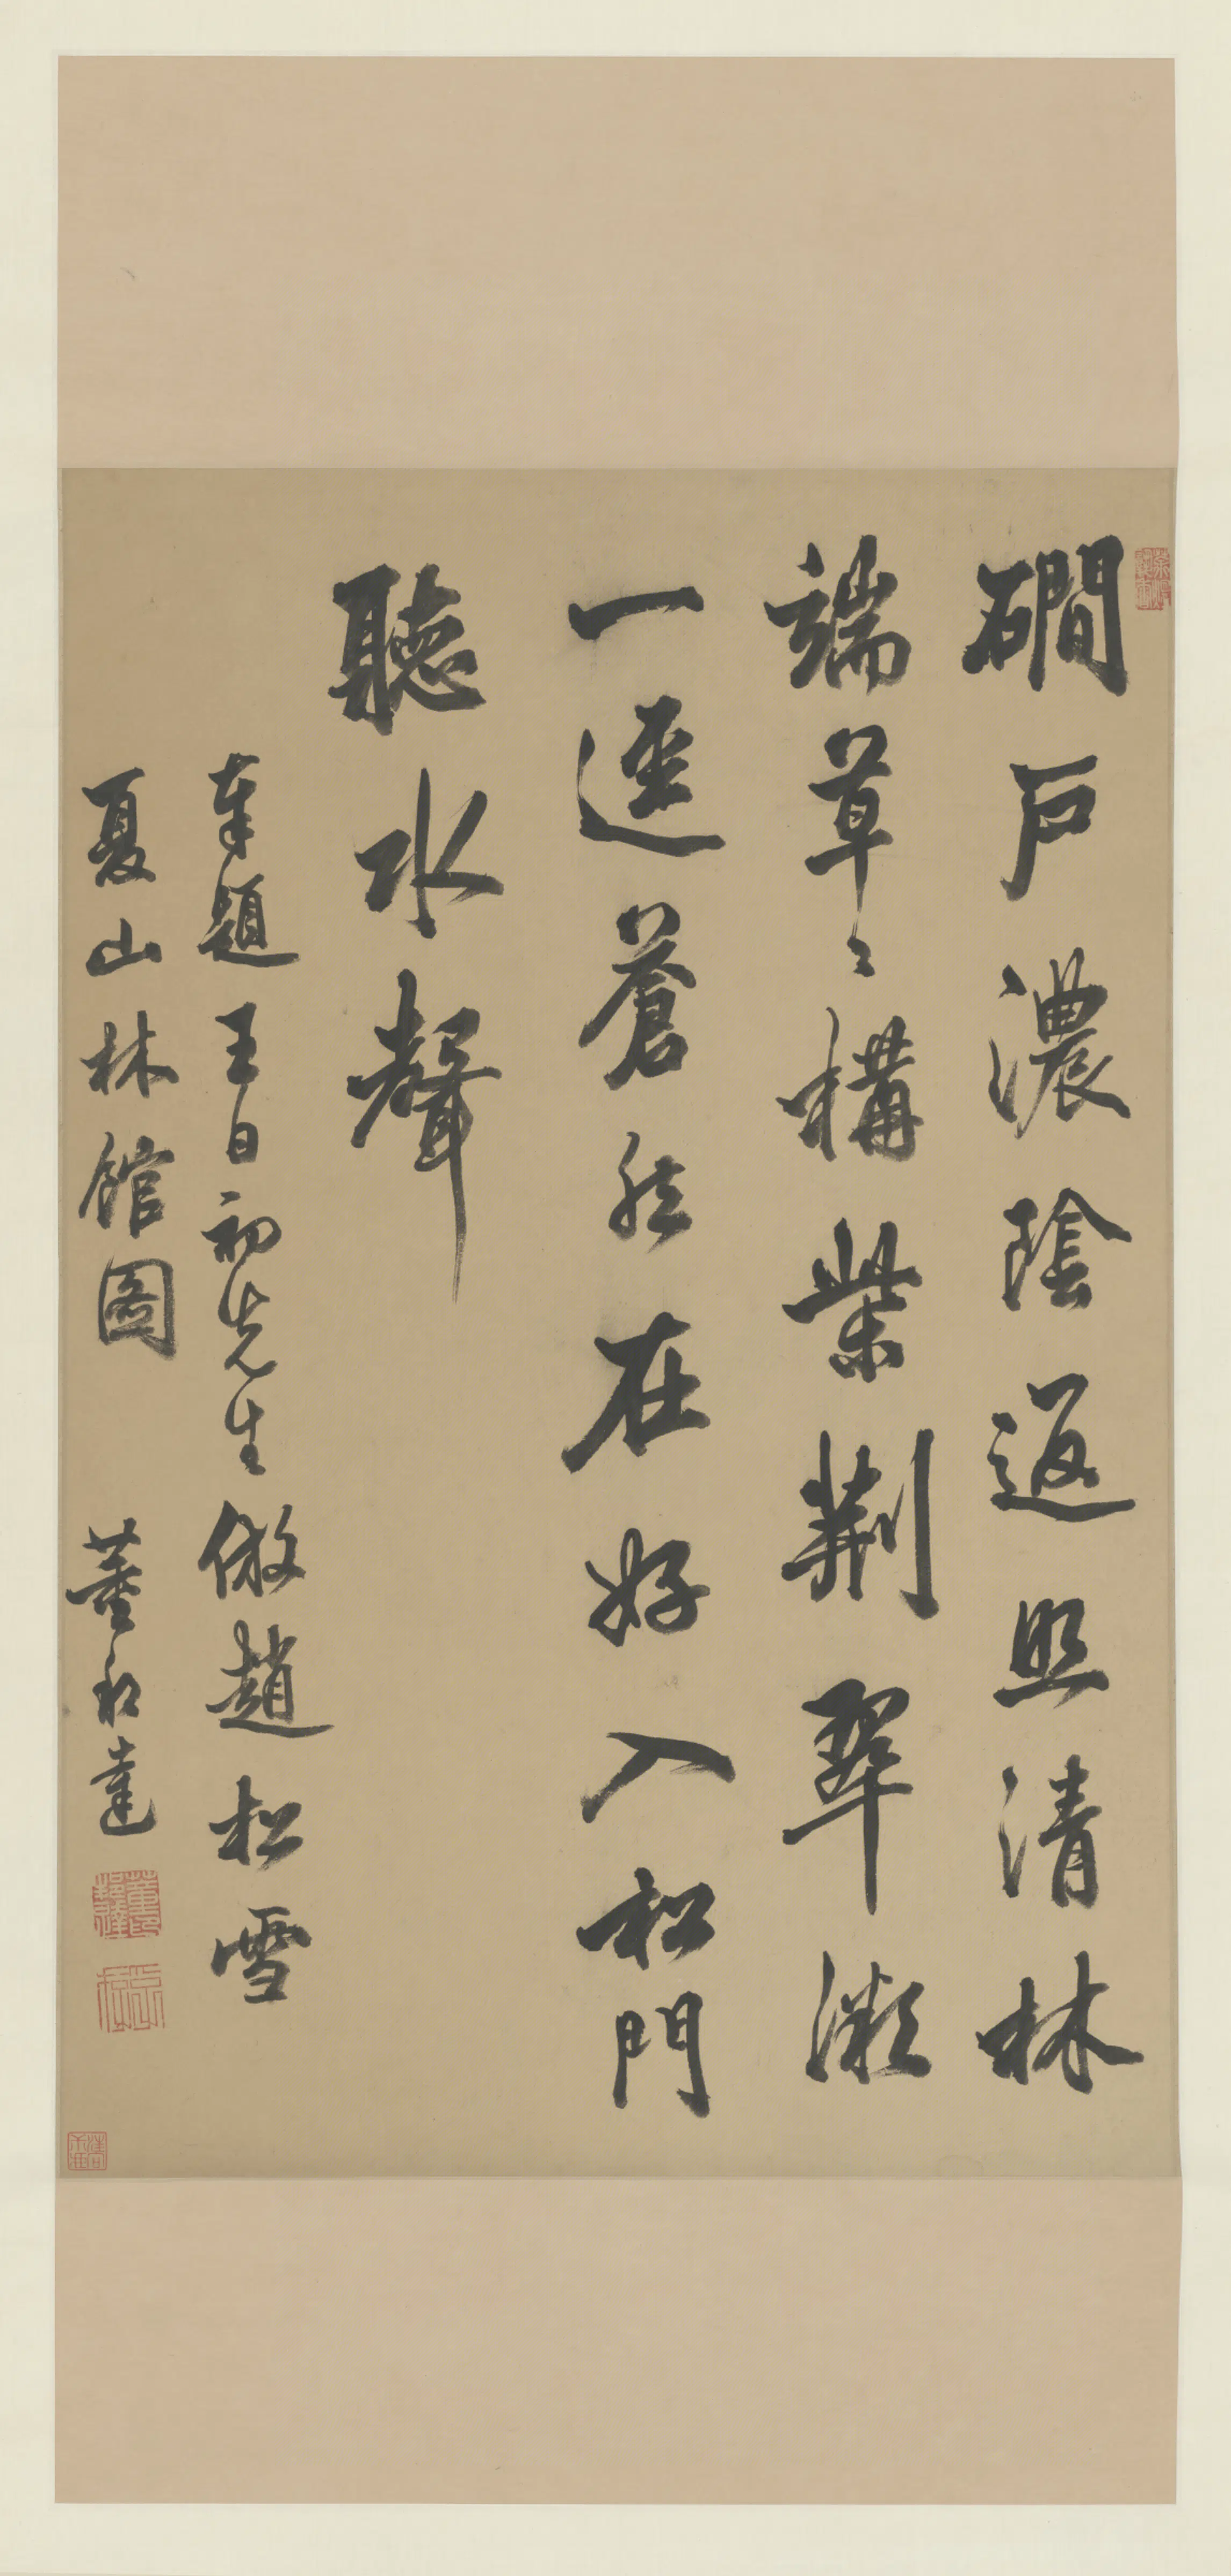 磵戶濃陰返照清林
端草〻構柴荆翠微
一逕蒼然在好入松門
聽水聲
奉題王日初先生倣趙松雪
夏山林館圖 董邦達